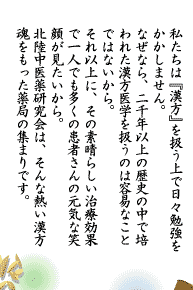 私たちは『漢方』を扱う上で日々勉強を
かかしません。
なぜなら、二千年以上の歴史の中で培
われた漢方医学を扱うのは容易なこと
ではないから。
それ以上に、その素晴らしい治療効果
で一人でも多くの患者さんの元気な笑
顔が見たいから。
北陸中医薬研究会は、そんな熱い漢方
魂をもった薬局の集まりです。